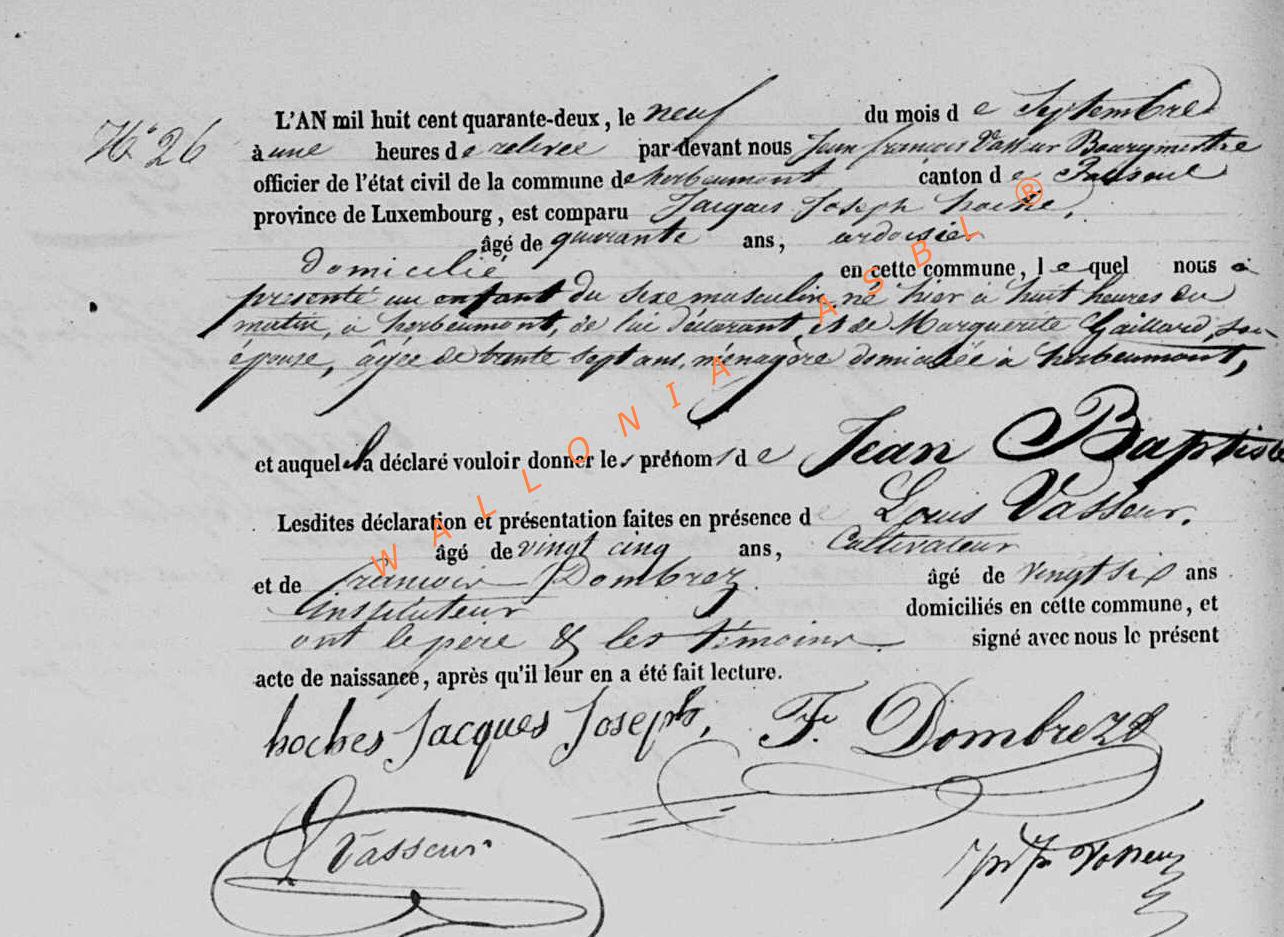 N° 26
L'AN mil huit cent quarante-deux, le neuf du mois de Septembre
à une heures de relevée par-devant nous Jean françois Vasseur Bourgmestre
officier de l'état civil de la commune de herbeumont canton de
province de Luxembourg, est comparu Jacques Joseph
âgé de quarante ans, ardoisier
domicilié en cette commune, lequel nous a
présenté un enfant du sexe masculin, né hier à huit heures du
matin, à herbeumont, de lui déclarant et de Marguerite Gaillard, son
épouse, âgée de trente sept ans, ménagère domiciliée à herbeumont,
et auquel il a déclaré vouloir donner les prénoms de Jean Baptiste
Lesdites déclaration et présentation faites en présence de Louis Vasseur.
âgé de vingt cinq ans, Cultivateur
et de françois Dombrez âgé de vingt six ans
instituteur domiciliés en cette commune, et
ont le père & les témoins signé avec nous le présent
acte de naissance, après qu'il leur en a été fait lecture.
hoches Jacques Joseph, F. Dombrez
L Vasseur
Vasseur
WALLONIA ASBL ®